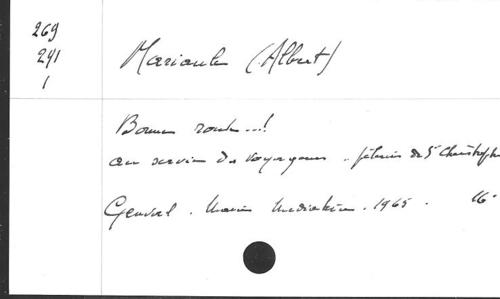 269
241
1
Marioule (Albert)
Bonne route...!
au service des voyageurs. pèlerins de St Christophe
Genval. Marie Médiatrice. 1965. 16°